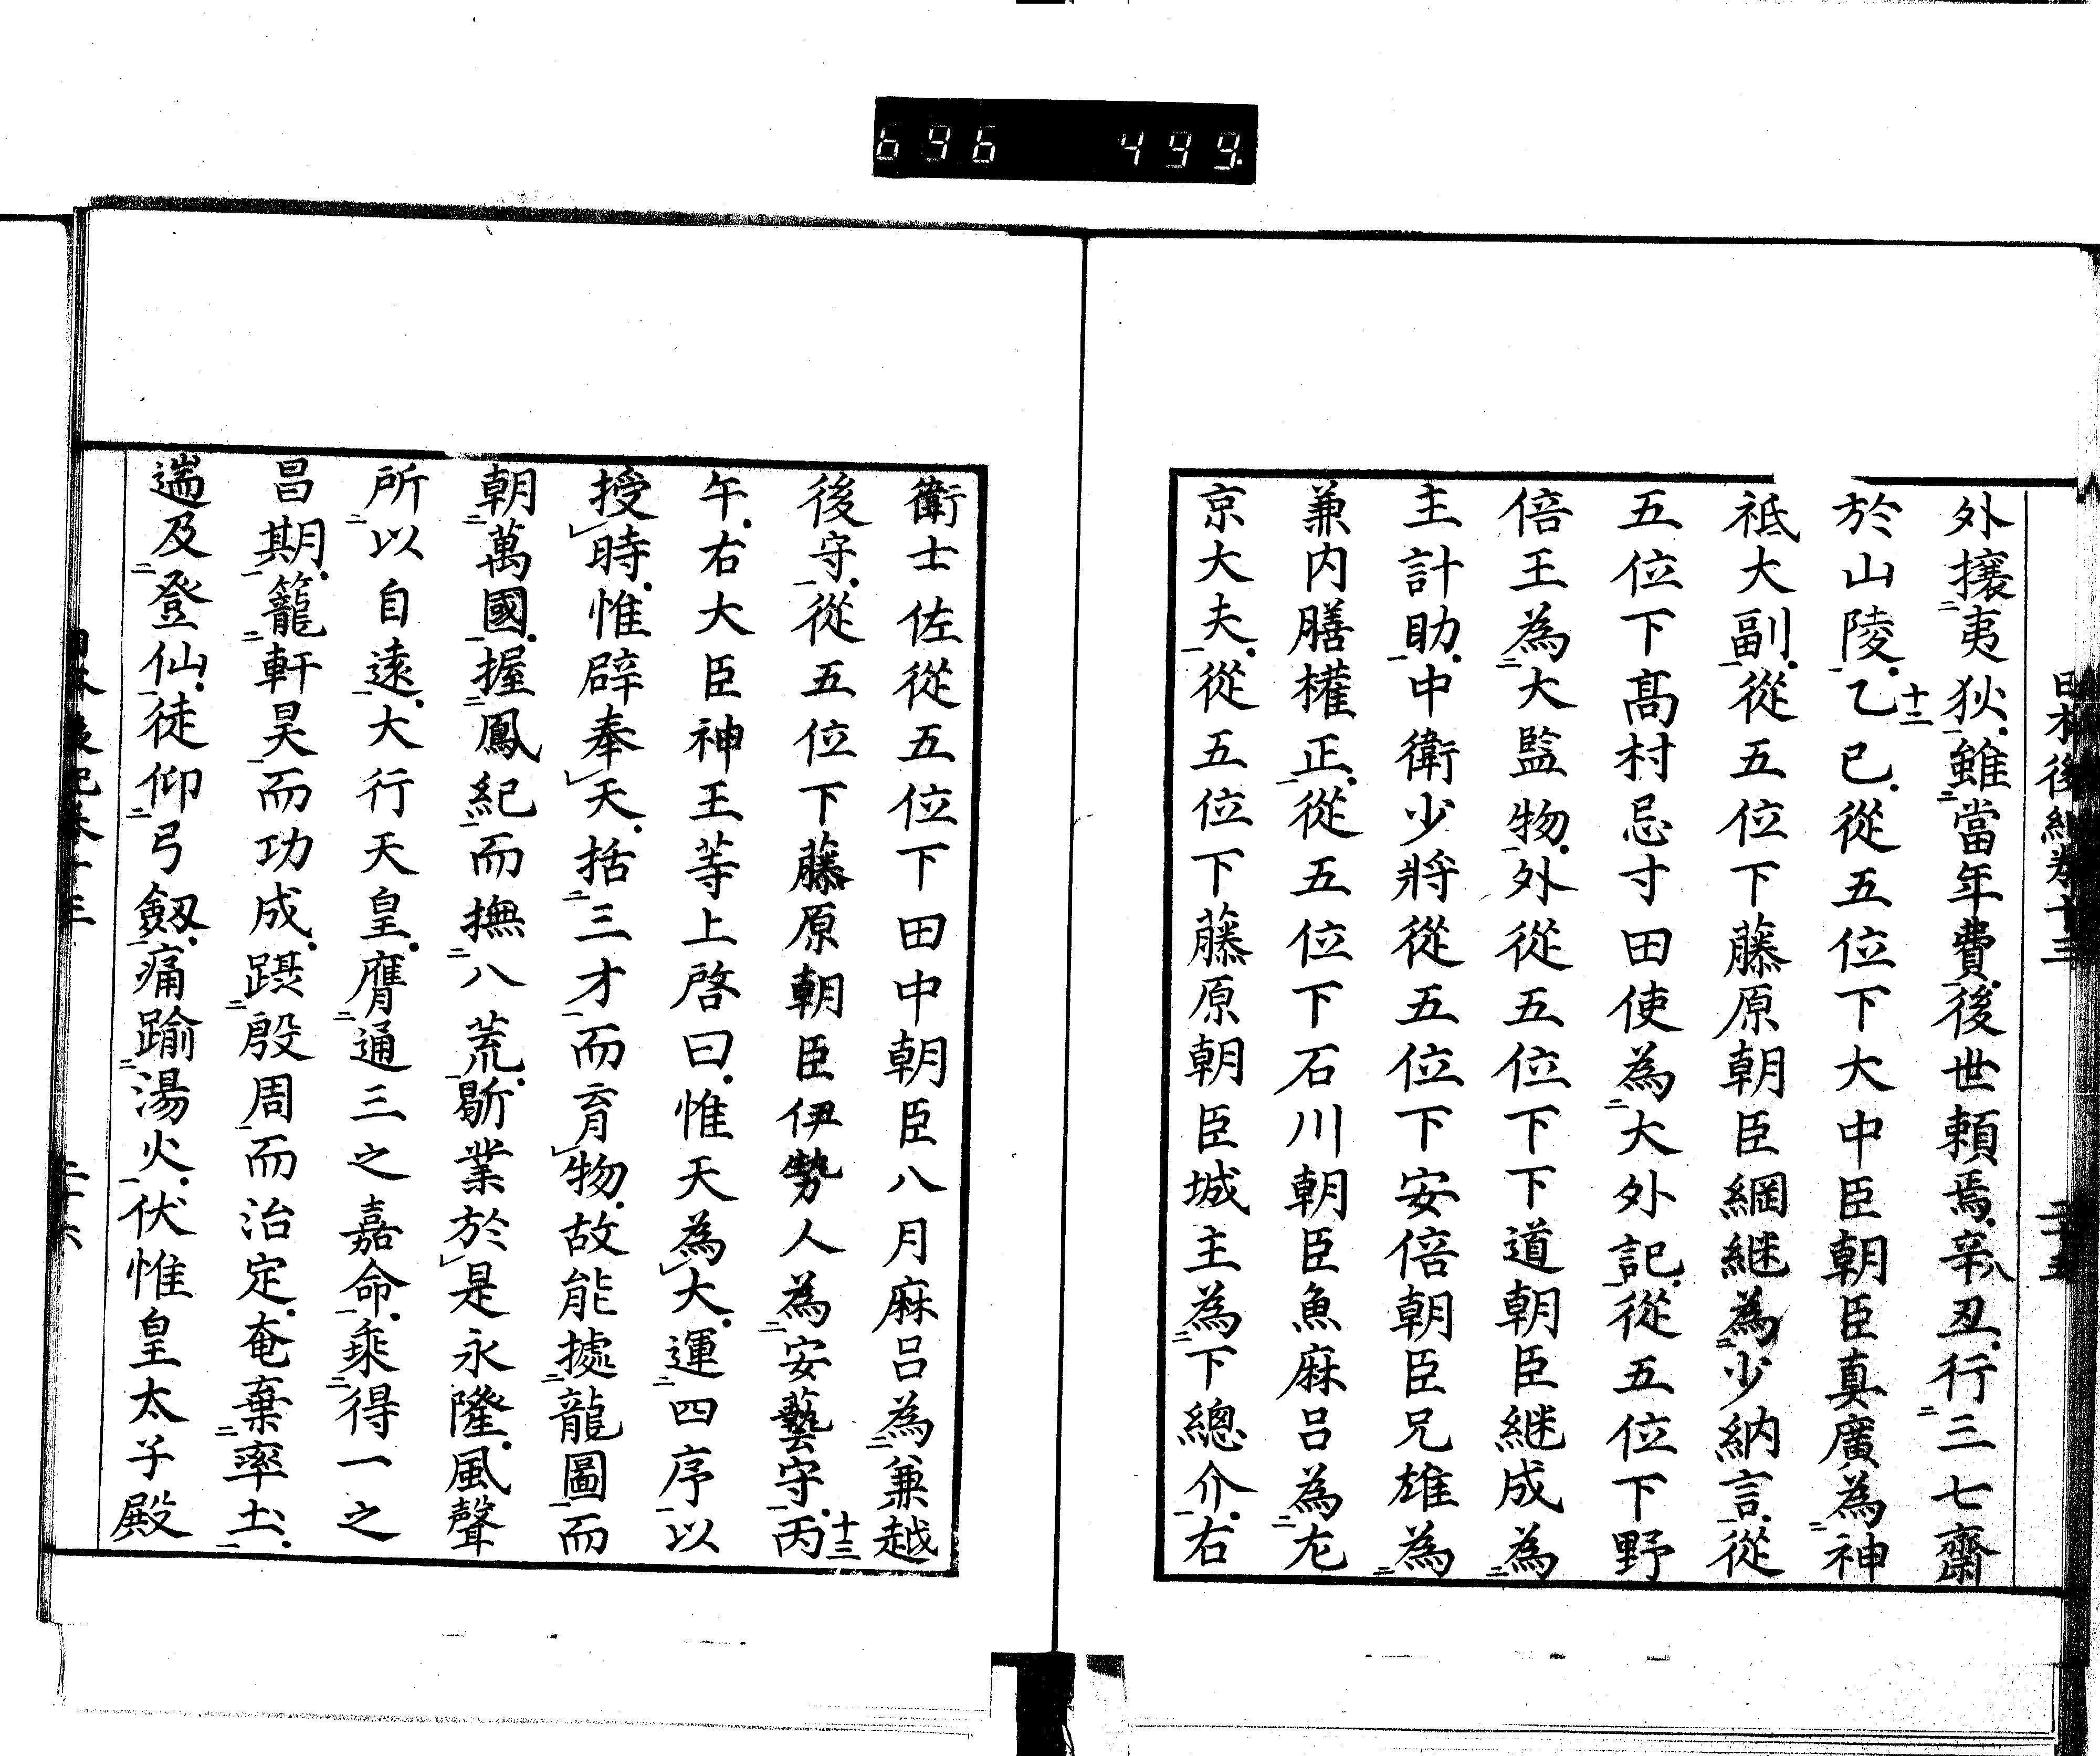 696 499
日本後紀卷十三 二十五
外攘夷狄雖當年費後世頼焉辛丑行三七齋
於山陵乙巳從五位下大中臣朝臣真廣為神
祗大副從五位下藤原朝臣綱継為少納言從
五位下髙村忌寸田使為大外記從五位下野
倍王為大監物外從五位下下道朝臣継成為
主計助中衛少將從五位下安倍朝臣兄雄為
兼内膳權正從五位下石川朝臣魚麻呂為左
京大夫從五位下藤原朝臣城主為下總介右
衛士佐從五位下田中朝臣八月麻呂為兼越
後守從五位下藤原朝臣伊勢人為安藝守丙
午右大臣神王等上啓曰惟天為大運四序以
授時惟辟奉天括三才而育物故能據龍圖而
朝萬國握鳳紀而撫八荒斲業於是永隆風聲
所以自遠大行天皇膺通三之嘉命乘得一之
昌期籠軒昊而功成躡殷周而治定奄棄率土
遄及登仙徒仰弓劔痛踰湯火伏惟皇太子殿